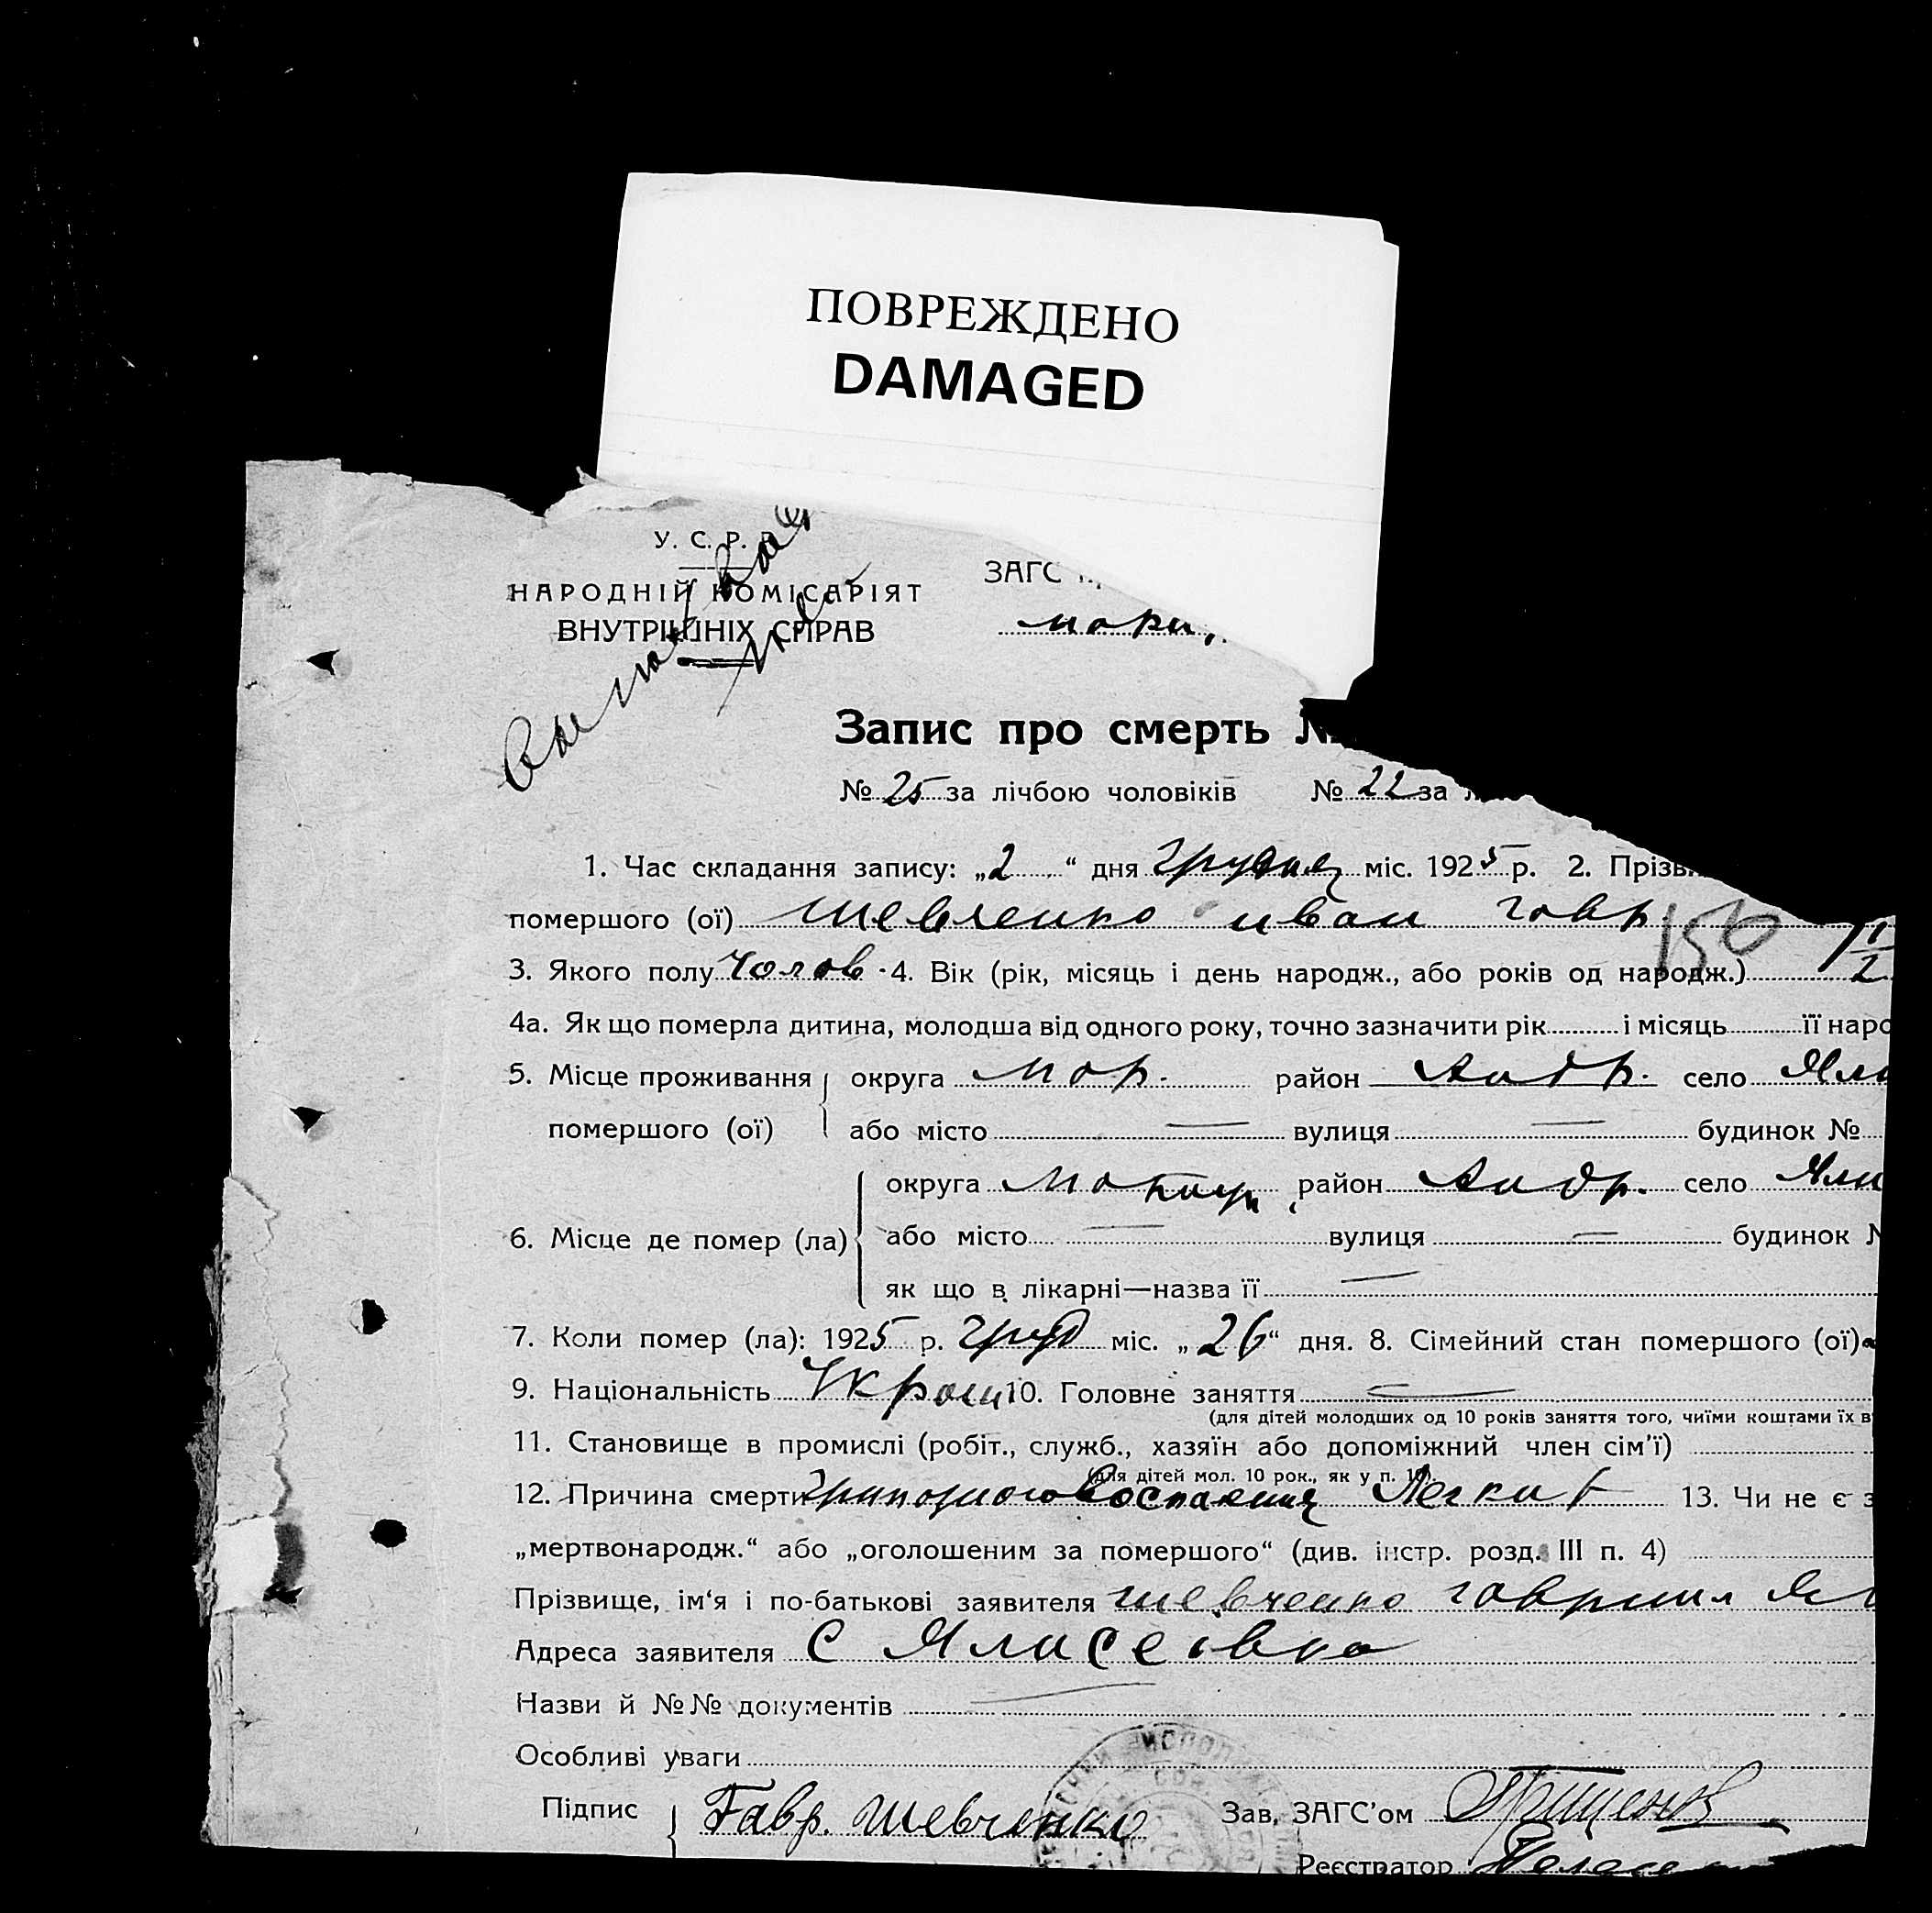 ПОВРЕЖДЕНО
DAMAGED
У. С. Р. Р.
НАРОДНІЙ КОМІСАРІЯТ
ВНУТРІШНІХ СПРАВ
ЗАГС
Запис про смерть №
№ 25 за лічбою чоловіків № 22 за
1. Час складання запису: „2“ дня грудня міс. 1925 р. 2. Прізв
помершого (ої) Шевченко иван гавр
156
3. Якого полу Чолов. 4. Вік (рік, місяць і день народж., або років од народж.) 1 1/2
4а. Як що померла дитина, молодша від одного року, точно зазначити рік і місяць її наро
5. Місце проживання помершого (ої) округа Мар. район Андр. село Яли
або місто — вулиця — будинок №
6. Місце де помер (ла) округа район Андр. село Яли
або місто — вулиця — будинок №
як що в лікарні—назва її —
7. Коли помер (ла): 1925 р. груд міс. „26“ дня. 8. Сімейний стан помершого (ої)
9. Національність Украин 10. Головне заняття —
(для дітей молодших од 10 років заняття того, чиїми коштами їх в
11. Становище в промислі (робіт., служб., хазяїн або допоміжний член сім'ї)
(для дітей мол. 10 рок., як у п. 10).
12. Причина смерти Воспаления Легких 13. Чи не є з
„мертвонародж.“ або „оголошеним за помершого“ (див. інстр. розд. III п. 4)
Прізвище, ім‘я і по-батькові заявителя шевченко гавриил
Адреса заявителя С Ялисеевка
Назви й №№ документів —
Особливі уваги
Підпис Гавр. Шевченко Зав. ЗАГС'ом
Реєстратор